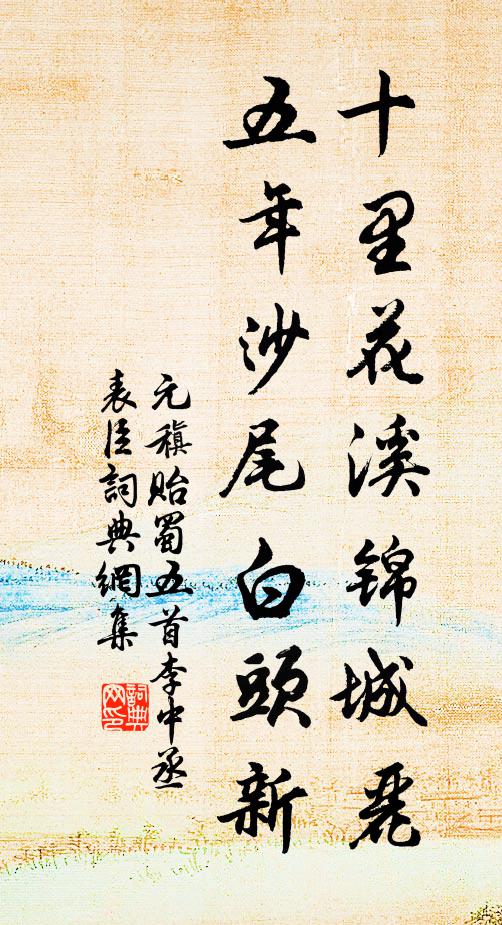 十里花溪锦城丽
五年沙尾白頭新
元稹貽蜀五首李中丞
表臣詞典網集
詞典网印